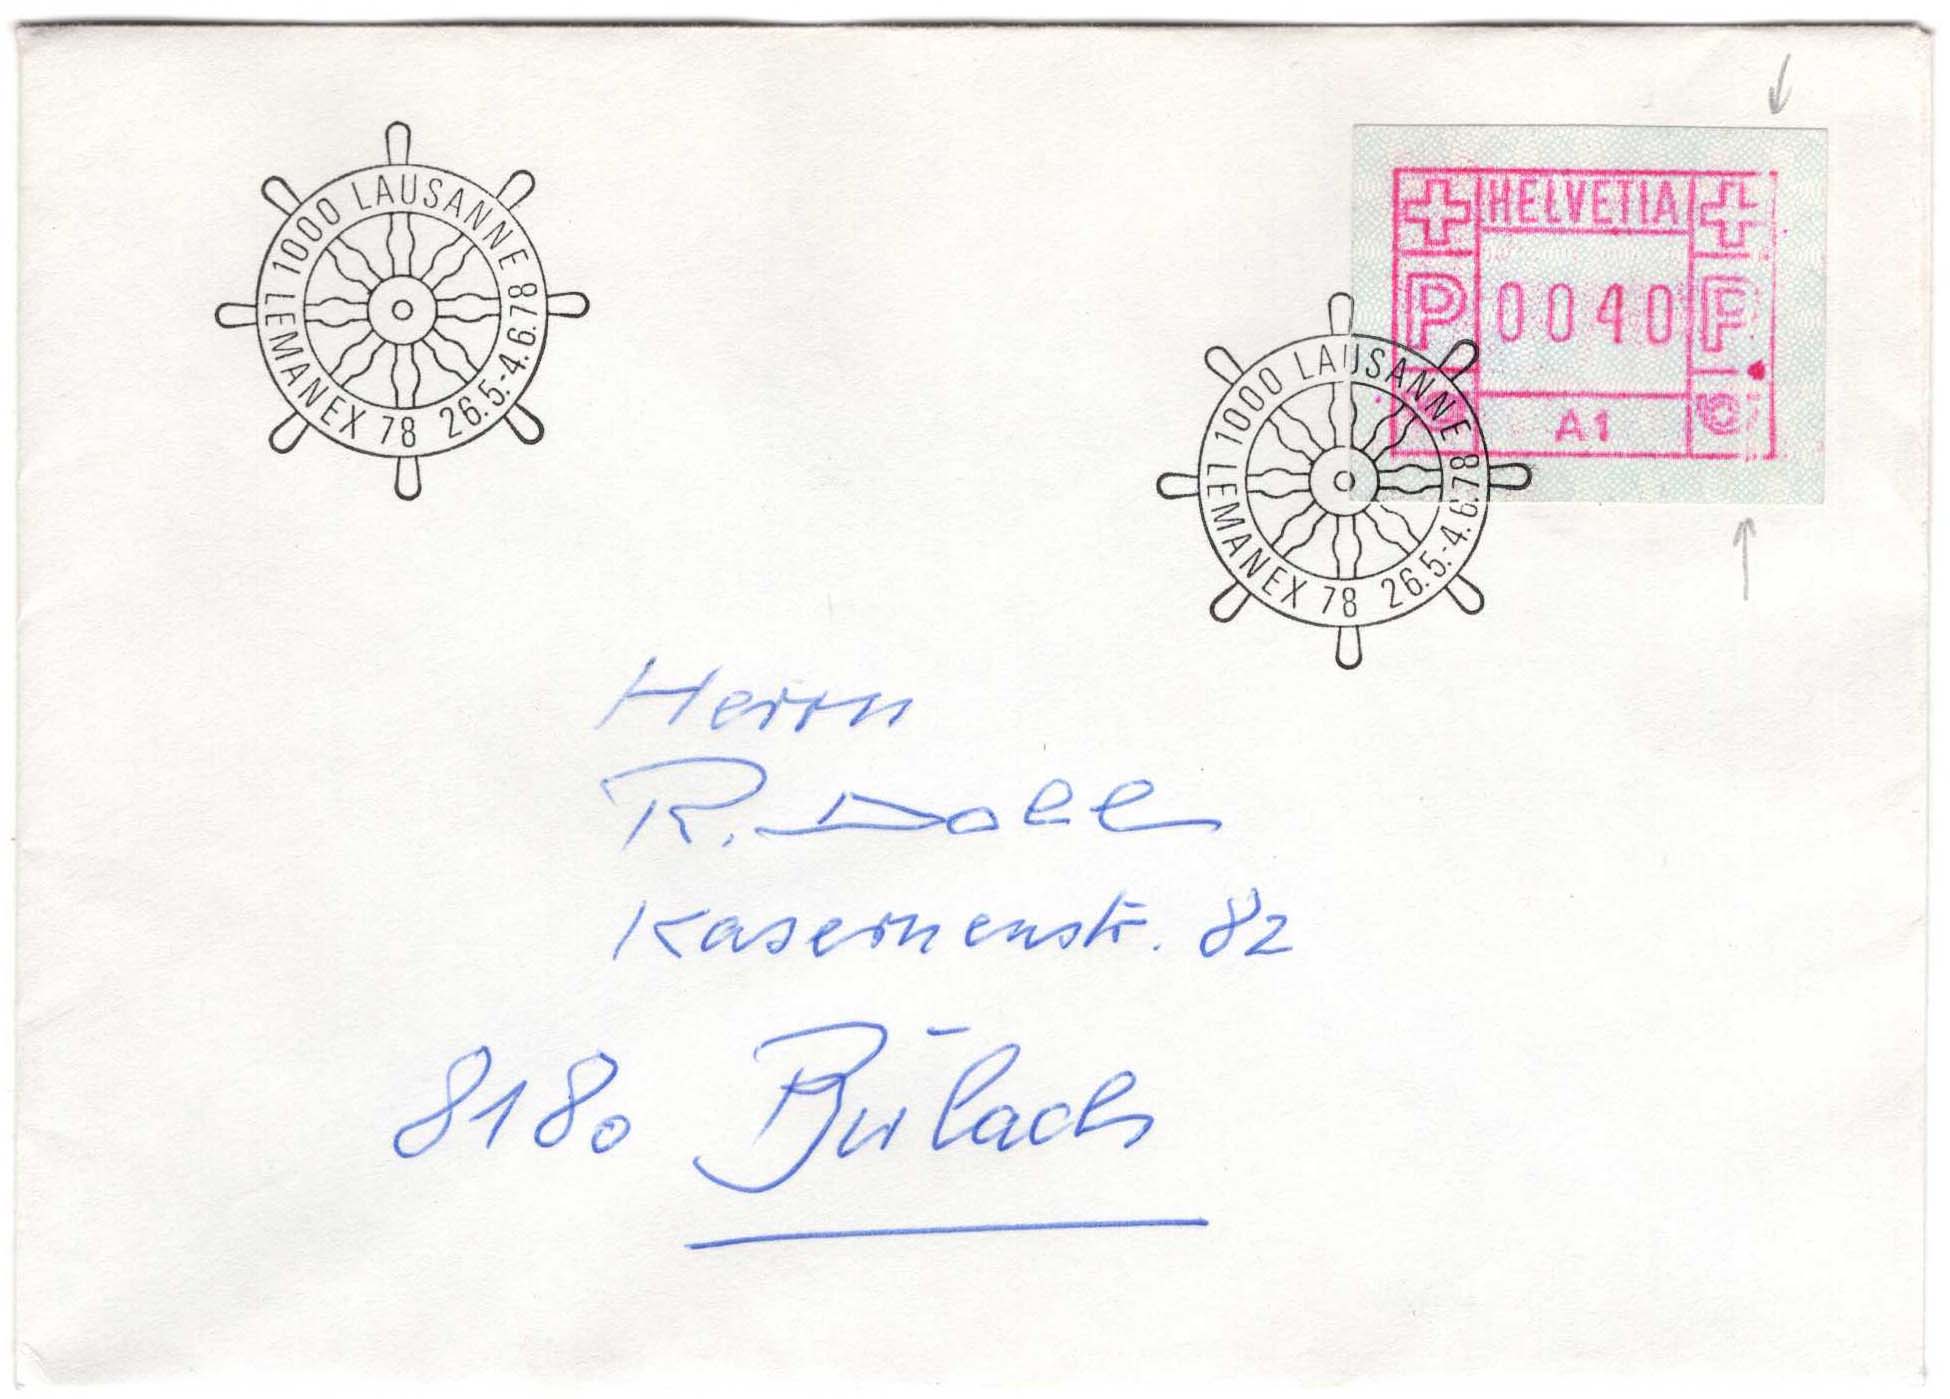 1000 LAUSANNE
LEMANEX 78 26.5.-4.6.78
HELVETIA
P 0040 P
A1
1000 LAUSANNE
LEMANEX 78 26.5.-4.6.78
Herrn
R. Doll
Kasernenstr. 82
8180 Bülach